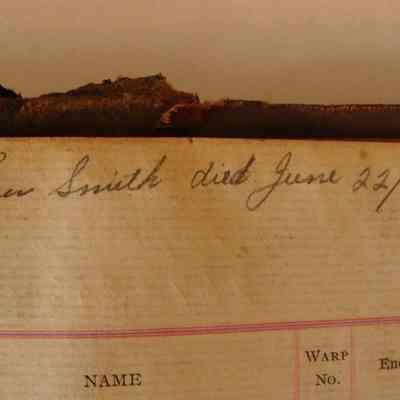 Smith died June 22/
NAME
WARP
No.